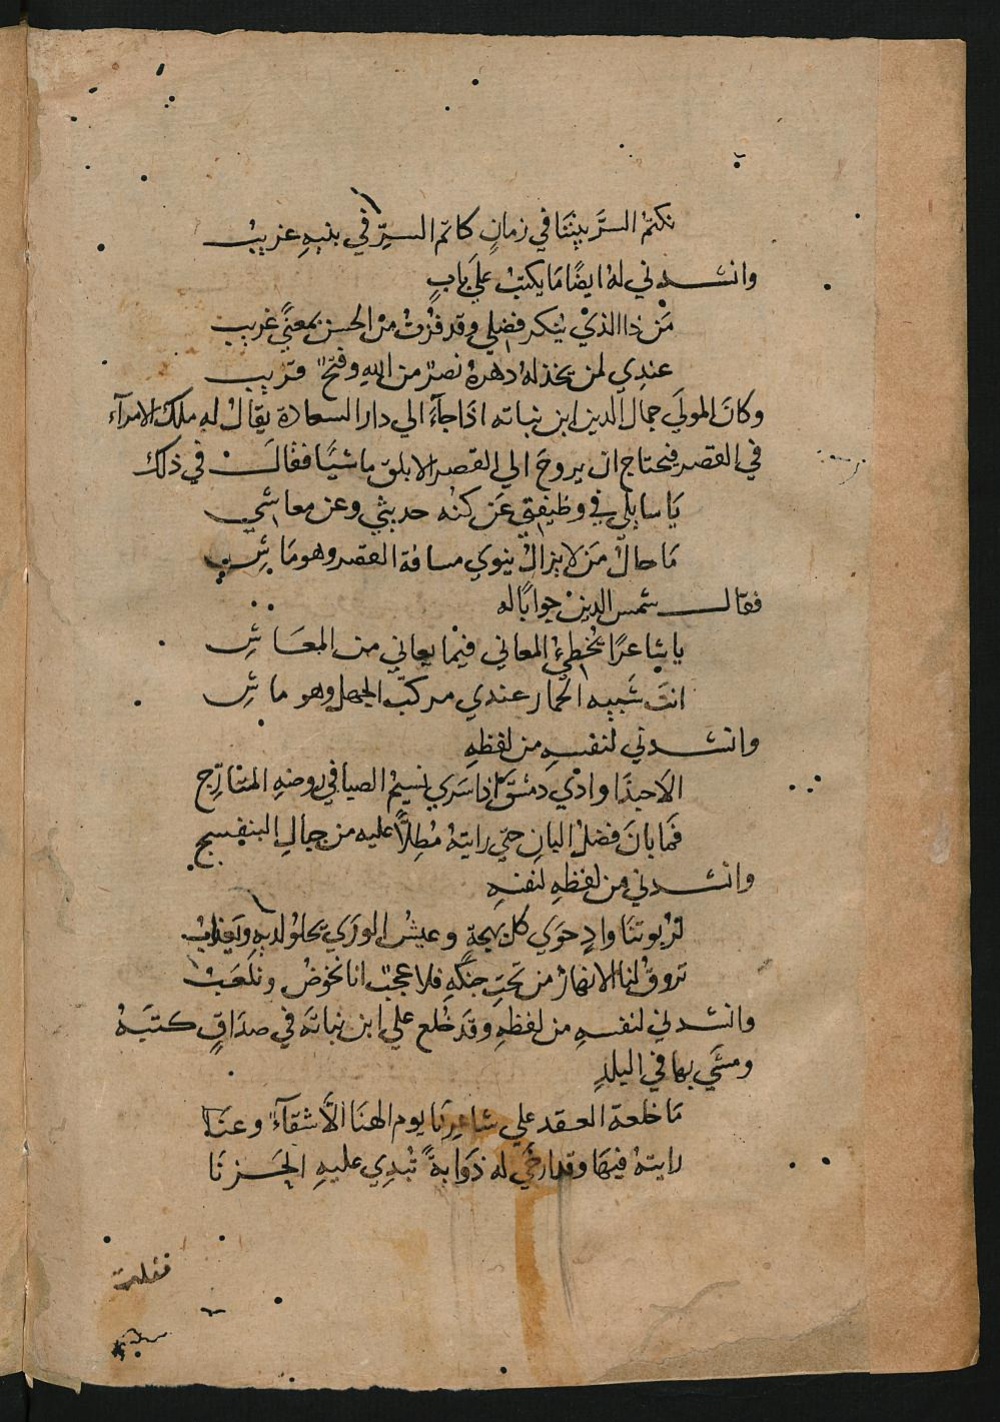 نكتم السرَّ بيننَا في زمانٍ كاتم السرِّ في بنيهِ غريبُ
وانشدني له ايضًا مَا يكتبُ علَي بابٍ
مَن ذا الذيْ ينكر فضلي وقد فزْتُ من الحسن بمعنًي غريب
عندِي لمن يخذله دهرهُ نصرٌ من اللهِ وفتحٌ قريب
وكانَ المولَي جمال الدين ابن نباته اذَا جآءَ الي دار السعادة يقالُ له ملك الامرآء
في القصر فيحتاج ان يروحَ الي القصر الابلق ماشيًا فقالَ في ذلك
يَا سايلي في وظيفتي عَن كنْه حديثي وعن معاشي
مَا حالُ مَن لا يزالُ ينوي مسافة القصر وهو مَاشِي
فقال شمس الدين جوابًا له
يا شاعرًا يُخطيُ المعاني فيْما يعاني من المعَاشِ
انتَ شَبيه الحمار عندي مركبُ الجهل وهو ماشِ
وانشدني لنفسهِ من لفظهِ
الا حبذَا وادْي دمشقَ اذا سَري نسيمُ الصبا في روضهِ المتارِّج
فمَا بانَ فضلُ البانِ حتي رايتهُ مُطِلًا عليه من جبالِ البنفسج
وانشدني من لفظهِ لنفسهِ
لرَبوتنَا وادٍ حوَي كل بهجةٍ وعيشُ الورَي يحلوُ لديهِ ويَعذبُ
تروقُ لنا الانهارُ من تحتِ جنكهِ فلا عجبٌ انا نخوضُ ونلعَبُ
وانشدني لنفسهِ من لفظهِ وقد خُلع علي ابن نباتَه في صدَاقٍ كتبَهُ
ومشَي بها في البلدِ
مَا خلعة العقد علي شاعِرِنَا يوم الهنَا الَّا شقآءٌ وعنَا
رايتهُ فيهَا وقد ارخَي له ذوَابةً تُبدِي عليهِ الحَزنَا
فقلت